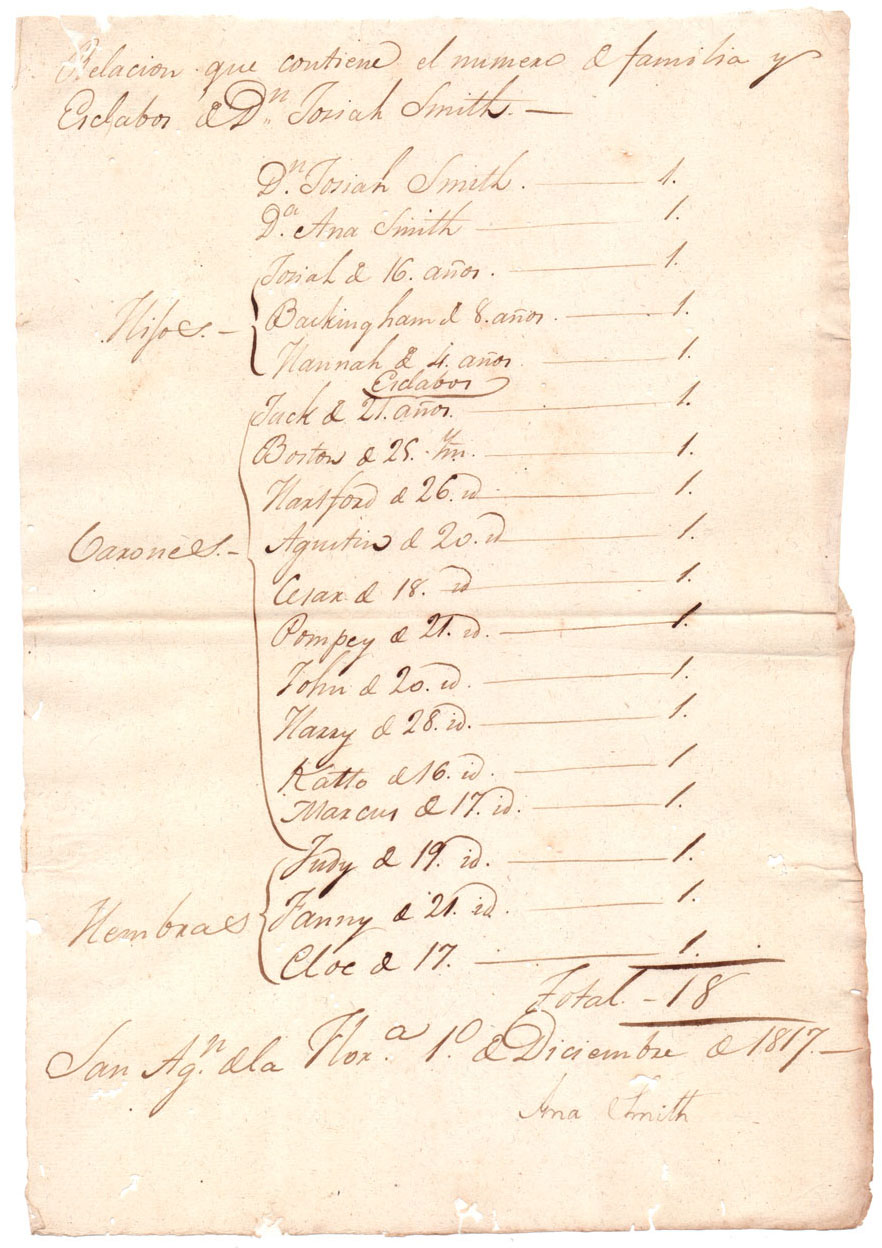 Relacion que contiene el numero de familia y
Esclabos de Dn. Josiah Smith. —
Dn. Josiah Smith. — 1.
Da. Ana Smith — 1.
Josiah de 16. años. — 1.
Hijos. — Backingham de 8. años. — 1.
Hannah de 4. años — 1.
Esclabos
Jack de 21. años. — 1.
Boston de 25. — 1.
Hartford de 26. id — 1.
Varones. — Agustin de 20. id — 1.
Cesar de 18. id — 1.
Pompey de 21. id. — 1.
John de 20. id. — 1.
Harry de 28. id. — 1.
Katto de 16. id. — 1.
Marcus de 17. id. — 1.
Judy de 19. id. — 1.
Hembras Fanny de 21. id. — 1.
Cloe de 17. — 1.
Total. - 18
San Agn. de la Flora. 1o. de Diciembre de 1817. —
Ana Smith